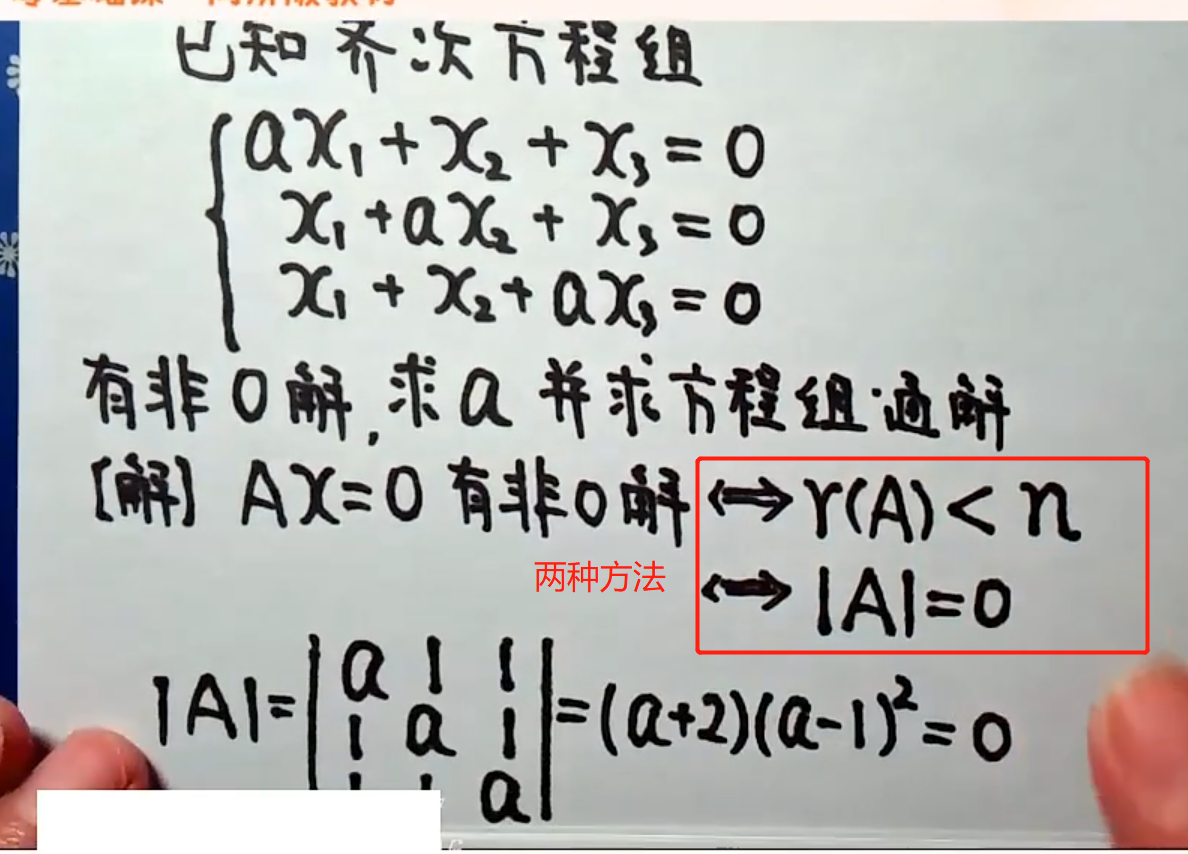 已知齐次方程组
ax₁+x₂+x₃=0
x₁+ax₂+x₃=0
x₁+x₂+ax₃=0
有非0解,求a并求方程组通解
[解] AX=0有非0解⟺r(A)<n
两种方法 ⟺|A|=0
|A|=|a 1 1
1 a 1
1 1 a|=(a+2)(a-1)²=0